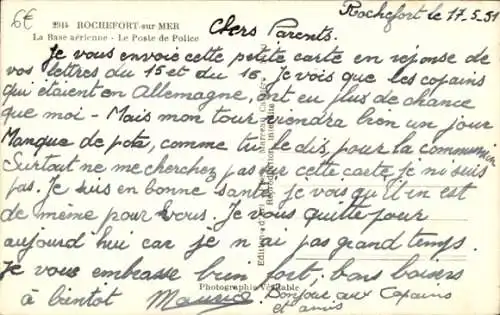 6E
2914 ROCHEFORT-sur-MER
La Base aérienne - Le Poste de Police
Rochefort le 17.5.51
Chers Parents.
Je vous envoie cette petite carte en réponse de
vos lettres du 15 et du 16. Je vois que les copains
qui étaient en Allemagne, ont eu plus de chance
que moi - Mais mon tour viendra bien un jour
Manque de pots, comme tu le dis, pour la communion
Surtout ne me cherchez pas sur cette carte je n'y suis
pas. Je suis en bonne santé je vois qu'il n est
de même pour vous. Je vous quitte pour
aujourd hui car je n ai pas grand temps.
Je vous embrasse bien fort, bons baisers
à bientôt Maurice. Bonjour aux Copains
et amis
Photographie Véritable
Reproduction interdite